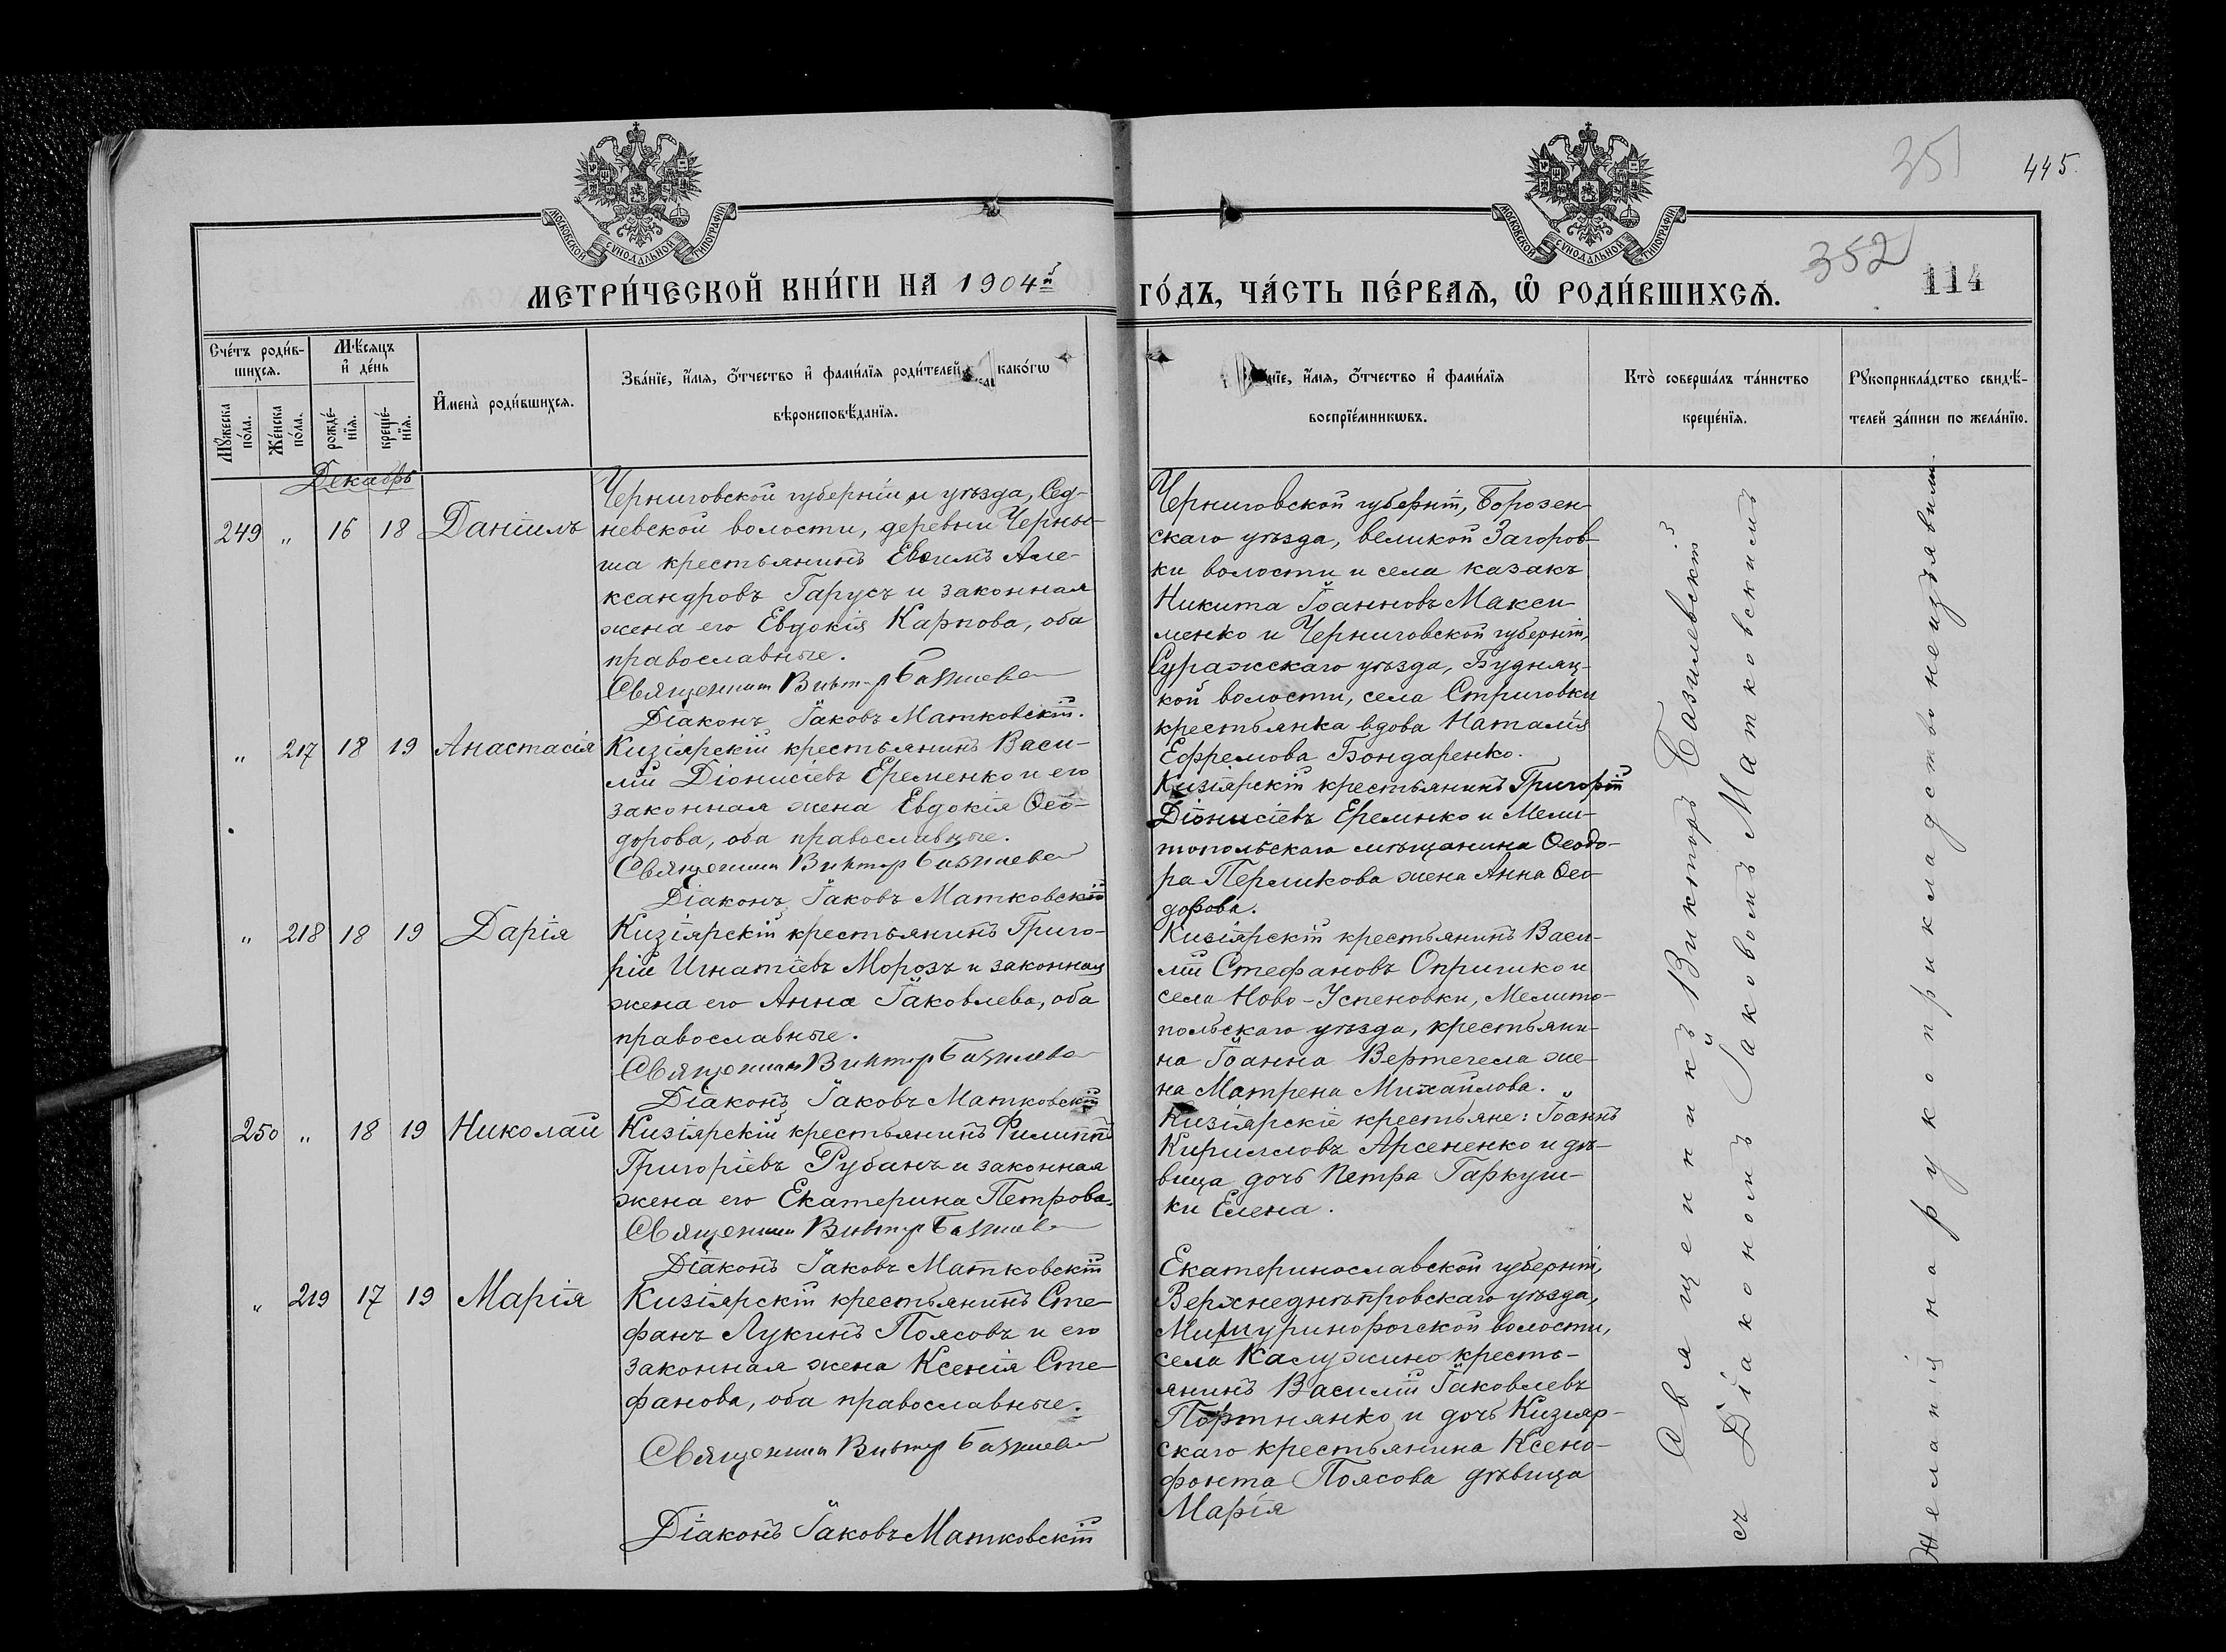 351
445.
МОСКОВСКОЙ СѴНОДАЛЬНОЙ ТИПОГРАФІИ
МОСКОВСКОЙ СѴНОДАЛЬНОЙ ТИПОГРАФІИ
352
114
МЕТРИ́ЧЕСКОЙ КНИ́ГИ НА 1904й
ГО́ДЪ, ЧА́СТЬ ПЕ́РВАѦ, Ѡ РОДИ́ВШИХСѦ.
Сче́тъ роди́в-
шихсѧ.
Мꙋ́жеска по́ла.
Же́нска по́ла.
Мѣ́сяцъ
и҆ де́нь
рожде́-
нїѧ.
креще́-
нїѧ.
И҆мена̀ роди́вшихсѧ.
Зва́нїе, и҆́мѧ, ѻ҆́тчество и҆ фами́лїѧ роди́телей како́гѡ
вѣроисповѣ́данїѧ.
нїе, и҆́мѧ, ѻ҆́тчество и҆ фами́лїѧ
воспрїе́мникѡвъ.
Кто̀ соверша́лъ та́инство
креще́нїѧ.
Рꙋкоприкла́дство свидѣ́-
телей за́писи по жела́нїю.
Декабрь
249 „ 16 18 Даніилъ
Черниговской губерніи и уѣзда, Сед-
невской волости, деревни Черны-
ша крестьянинъ Евѳимъ Але-
ксандровъ Гарусъ и законная
жена его Евдокія Карпова, оба
православные.
Священникъ Викторъ Базилевс
Діаконъ Іаковъ Матковскій.
Черниговской губерніи, Борозен
скаго уѣзда, великой Загоров-
ки волости и села казакъ
Никита Іоанновъ Макси
менко и Черниговской губерніи,
Суражскаго уѣзда, Будняц-
кой волости, села Стриговки
крестьянка вдова Наталія
Ефремова Бондаренко.
„ 217 18 19 Анастасія
Кизіярскій крестьянинъ Васи-
лій Діонисіевъ Еременко и его
законная жена Евдокія Ѳео-
дорова, оба православные.
Священникъ Викторъ Базилевс
Діаконъ Іаковъ Матковскій
Кизіярскій крестьянинъ Григорій
Діонисіевъ Еременко и Мели-
топольскаго мѣщанина Ѳеодо-
ра Перликова жена Анна Ѳео-
дорова.
„ 218 18 19 Дарія
Кизіярскій крестьянинъ Григо-
рій Игнатіевъ Морозъ и законная
жена его Анна Іаковлева, оба
православные.
Священникъ Викторъ Базилевс
Діаконъ Іаковъ Матковскій
Кизіярскій крестьянинъ Васи-
лій Стефановъ Опришко и
села Ново-Успеновки, Мелито-
польскаго уѣзда, крестьяни-
на Іоанна Вертегела же-
на Матрена Михайлова.
250 „ 18 19 Николай
Кизіярскій крестьянинъ Филиппъ
Григоріевъ Рубанъ и законная
жена его Екатерина Петрова.
Священникъ Викторъ Базилевс
Діаконъ Іаковъ Матковскій
Кизіярскіе крестьяне: Іоаннъ
Кирилловъ Арсененко и дѣ-
вица дочь Петра Гаркуш-
ки Елена.
„ 219 17 19 Марія
Кизіярскій крестьянинъ Сте-
фанъ Лукинъ Поясовъ и его
законная жена Ксенія Сте-
фанова, оба православные.
Священникъ Викторъ Базилевс
Діаконъ Іаковъ Матковскій
Екатеринославской губерніи,
Верхнеднѣпровскаго уѣзда,
Мишуринорогской волости,
села Калужино кресть-
янинъ Василій Іаковлевъ
Портнянко и дочь Кизіяр-
скаго крестьянина Ксено-
фонта Поясова дѣвица
Марія
Священникъ Викторъ Базилевскій
съ Діакономъ Іаковомъ Матковскимъ
Желанія на рукоприкладство не изъявили